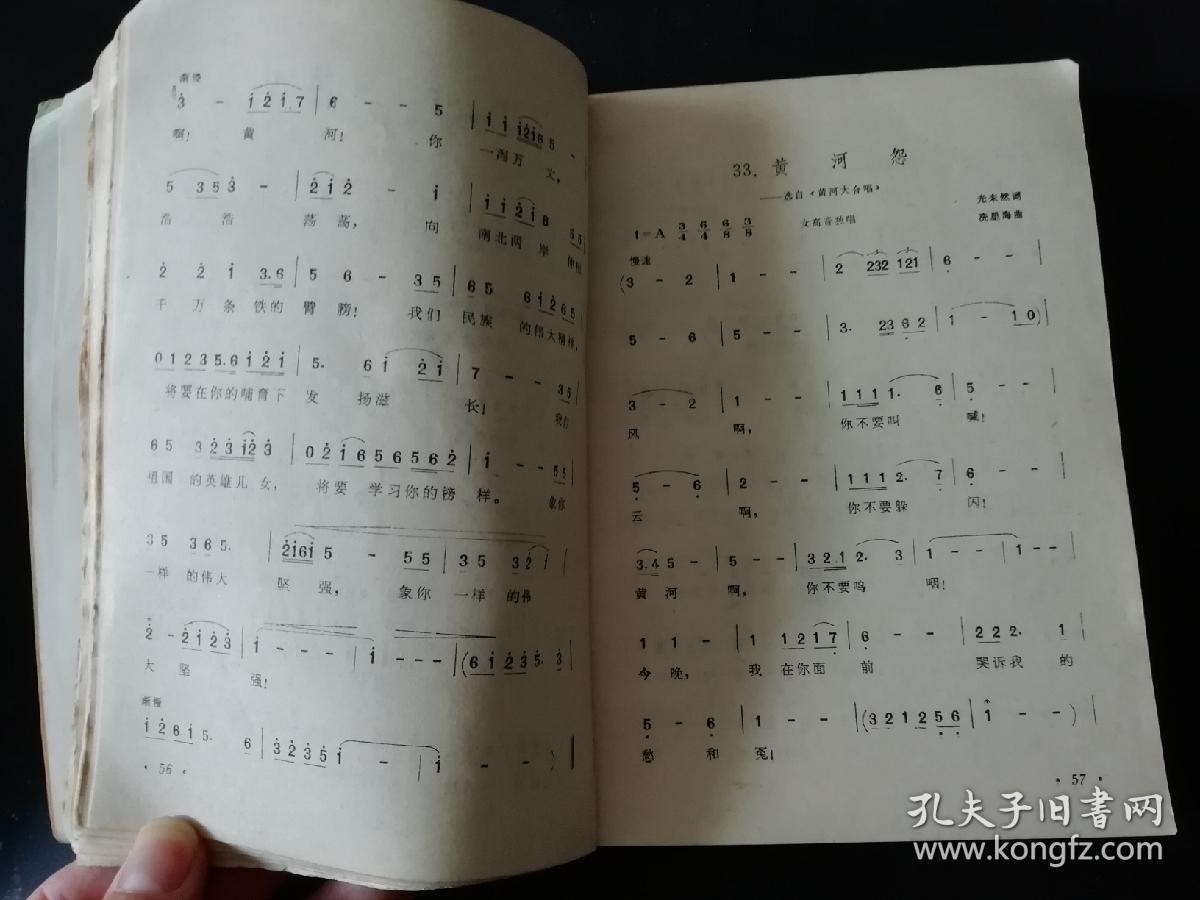 渐慢
3 - 1 2 1. 7 | 6 - - 5 | 1 1 1 2 1 6 5 -
啊! 黄 河! 你 一泻万 丈,
5 3 5 3 - | 2 1 2 - 1 | 1 1 2 1 6 5 5
浩 浩 荡荡, 向 南北两 岸
2 2 1 3. 6 | 5 6 - 3 5 | 6 5 6 1 2 6 5
千 万 条 铁的 臂 膀! 我们 民族 的伟大精神,
0 1 2 3 5. 6 1 2 1 | 5. 6 1 2 1 | 7 - - 3 5
将要在你的哺育下 发 扬滋 长! 我们
6 5 3 2 3 1 2 3 | 0 2 1 6 5 6 5 6 2 | 1 - - 5 5
祖国 的英雄儿 女, 将要 学习你的榜 样。 象你
3 5 3 6 5. | 2 1 6 1 5 - 5 5 | 3 5 3 2 1
一样 的伟大 坚 强, 象你 一样 的伟
2 - 2 1 2 3 | 1 - - - | 1 - - - | (6 1 2 3 5. 3
大 坚 强!
渐慢
1 2 6 1 5. 6 | 3 2 3 5 1 - - | 1 - - )
• 56 •
33. 黄 河 怨
——选自《黄河大合唱》
光未然词
1=A 3/4 6/4 6/8 3/8 女高音独唱 冼星海曲
慢速
(3 - 2 | 1 - - | 2 232 121 | 6 - -
5 - 6 | 5 - - | 3. 23 6 2 | 1 - 1 0)
3 - 2 | 1 - - | 1 1 1 1. 6 | 5 - -
风 啊, 你不要叫 喊!
5 - 6 | 2 - - | 1 1 1 2. 7 | 6 - -
云 啊, 你不要躲 闪!
3. 4 5 - | 5 - - | 3 2. 1 2. 3 | 1 - - | 1 - - |
黄 河 啊, 你不要呜 咽!
1 1 - | 1 1 2 1 7 | 6 - - | 2 2 2. 1 |
今 晚, 我 在你面 前 哭诉我 的
5 - 6 | 1 - - | (3 2 1 2 5 6 | 1 - - ) |
愁 和 冤!
• 57 •
孔夫子旧書网
www.kongfz.com